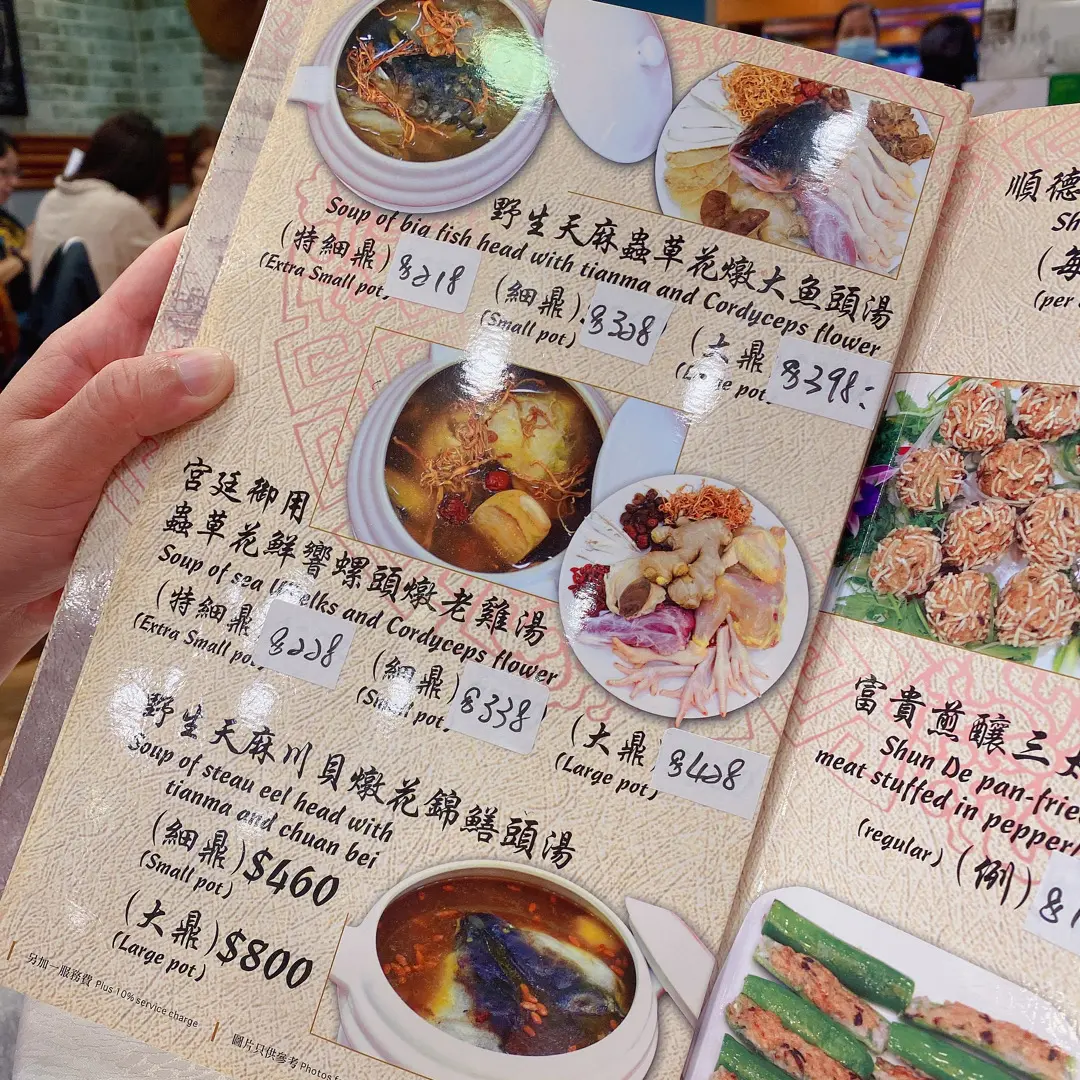 野生天麻蟲草花燉大魚頭湯
Soup of bia fish head with tianma and Cordyceps flower
(特細鼎) $218
(Extra Small pot)
(細鼎) $328
(Small pot)
(大鼎 $398
pot
宮廷御用
蟲草花鮮響螺頭燉老雞湯
Soup of sea and Cordyceps flower
(特細鼎 $228
(Extra Small
(細鼎) $338
pot
(大鼎 $428
(Large pot)
野生天麻川貝燉花錦鱔頭湯
Soup of steau eel head with
tianma and chuan bei
(細鼎) $460
(Small pot)
(大鼎) $800
(Large pot)
另加一服務費 Plus 10% service charge
圖片只供參考 Photos
順德
(每
(per
富貴煎釀三
Shun De pan-frie
meat stuffed in pepper
(regular) (例)